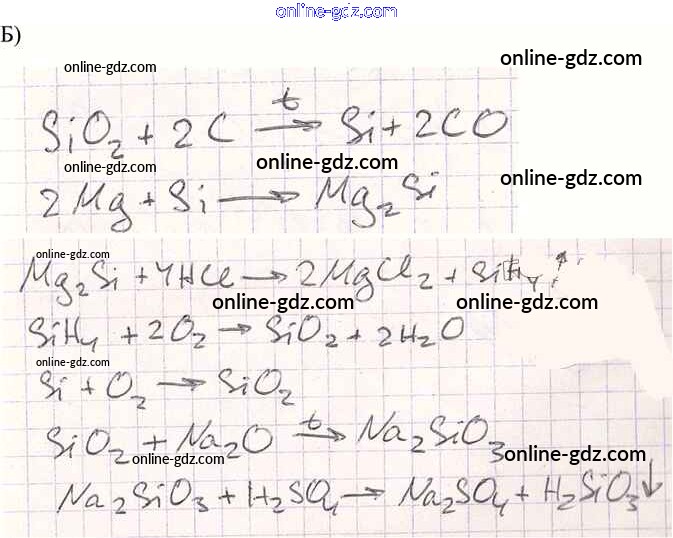 online-gdz.com
Б)
online-gdz.com
online-gdz.com
SiO₂ + 2C —t→ Si + 2CO
online-gdz.com
online-gdz.com
online-gdz.com
2Mg + Si → Mg₂Si
online-gdz.com
Mg₂Si + 4HCl → 2MgCl₂ + SiH₄↑
online-gdz.com
online-gdz.com
SiH₄ + 2O₂ → SiO₂ + 2H₂O
online-gdz.com
Si + O₂ → SiO₂
SiO₂ + Na₂O —t→ Na₂SiO₃
online-gdz.com
online-gdz.com
Na₂SiO₃ + H₂SO₄ → Na₂SO₄ + H₂SiO₃↓